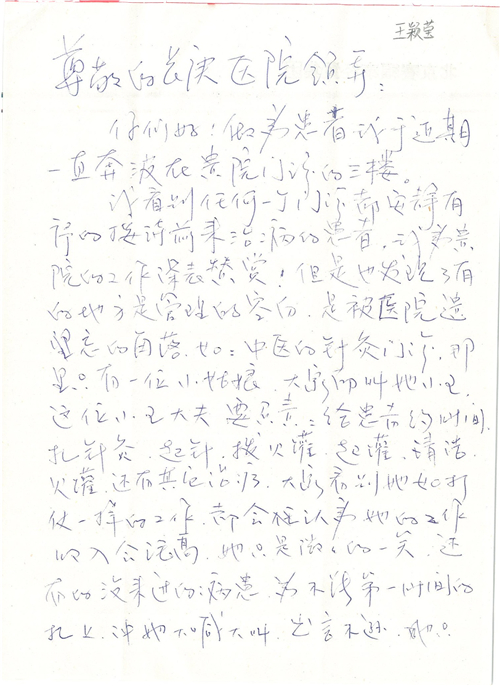 王颖莹
尊敬的长庚医院领导：
你们好！做为患者我于近期
一直奔波在贵院门诊的三楼。
我看到任何一个门诊都安静有
序的接待前来治病的患者，我为贵
院的工作深表赞赏！但是也发现了有
的地方是管理的空白，是被医院遗
忘的角落。如：中医的针灸门诊，那
里只有一位小姑娘，大家叫她小王，
这位小王大夫要负责：给患者约时间，
扎针灸、起针、拔火罐、起罐、清洁
火罐，还有其它治疗，大家看到她如打
仗一样的工作，都会误认为她的工作
收入会很高，她只是微微的一笑，还
有的没素质的病患，为不能第一时间的
扎上，冲她大喊大叫，出言不逊，她只